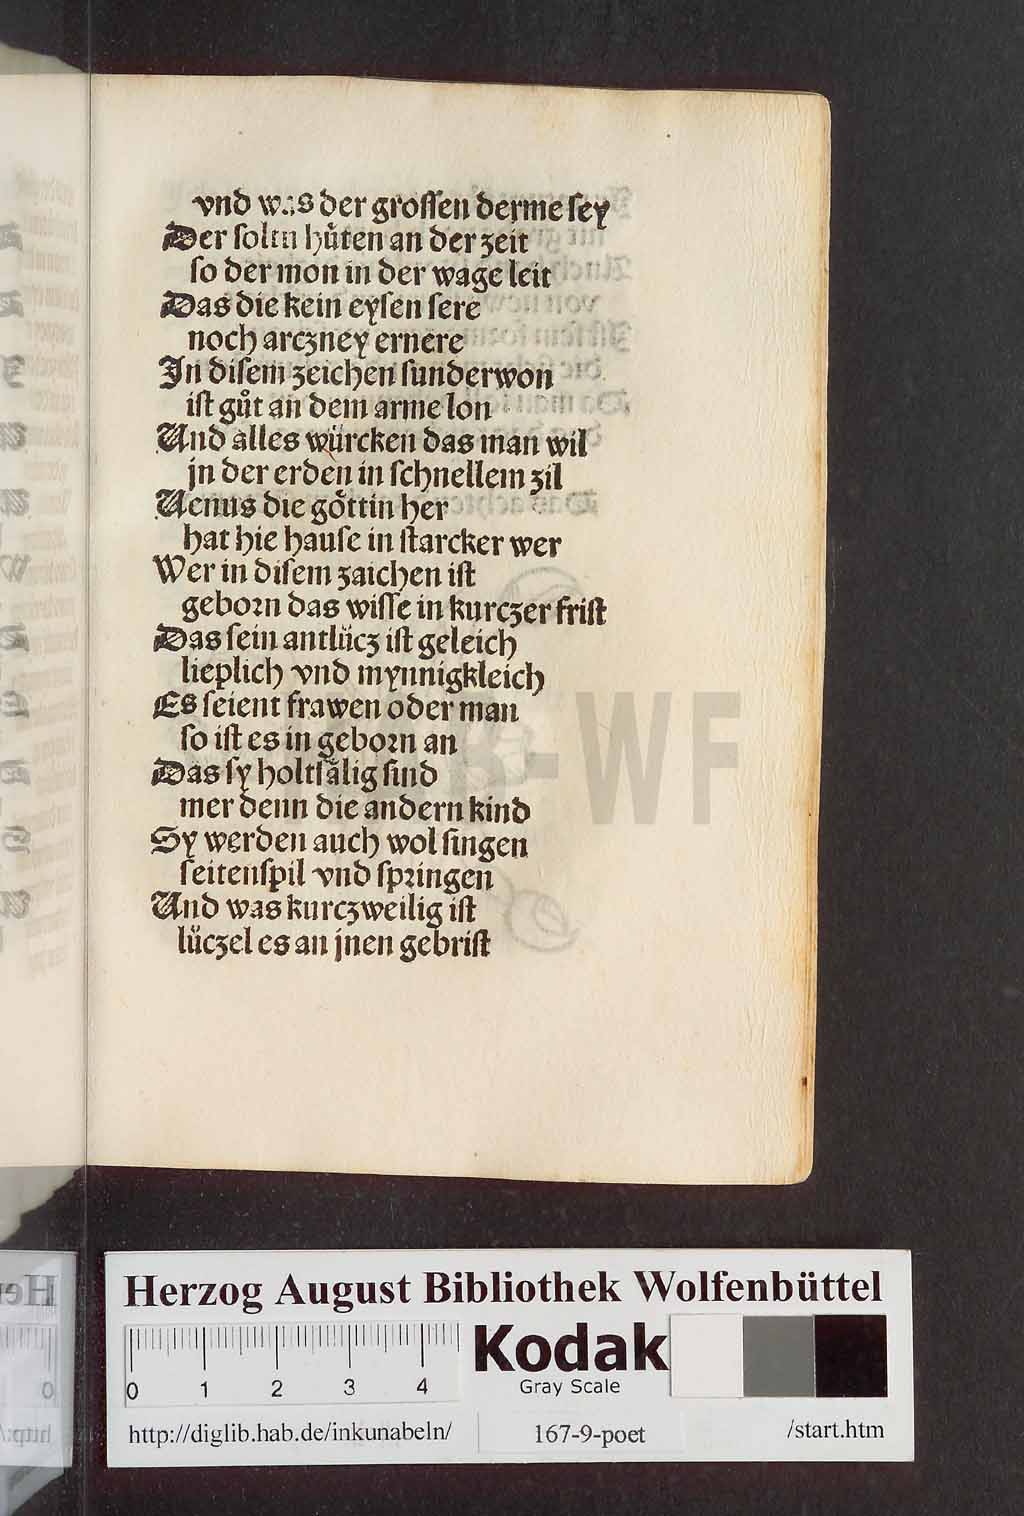 vnd was der groſſen derme ſey
Der ſolen huͤten an der zeit
ſo der mon in der wage leit
Das die kein eyſen ſere
noch arczney ernere
In diſem zeichen ſunderwon
iſt guͦt an dem arme lon
Und alles wuͤrcken das man wil
jn der erden in ſchnellem zil
Uenus die goͤttin her
hat hie hauſe in ſtarcker wer
Wer in diſem zaichen iſt
geboꝛn das wiſſe in kurczer friſt
Das ſein antluͤcz iſt geleich
lieplich vnd mynnigkleich
Es ſeient frawen oder man
ſo iſt es in geboꝛn an
Das ſy holtſaͤlig ſind
mer denn die andern kind
Sy werden auch wol ſingen
ſeitenſpil vnd ſpꝛingen
Und was kurczweilig iſt
luͤczel es an jnen gebriſt
HAB-WF
Herzog August Bibliothek Wolfenbüttel
0 1 2 3 4
Kodak
Gray Scale
http://diglib.hab.de/inkunabeln/ 167-9-poet /start.htm